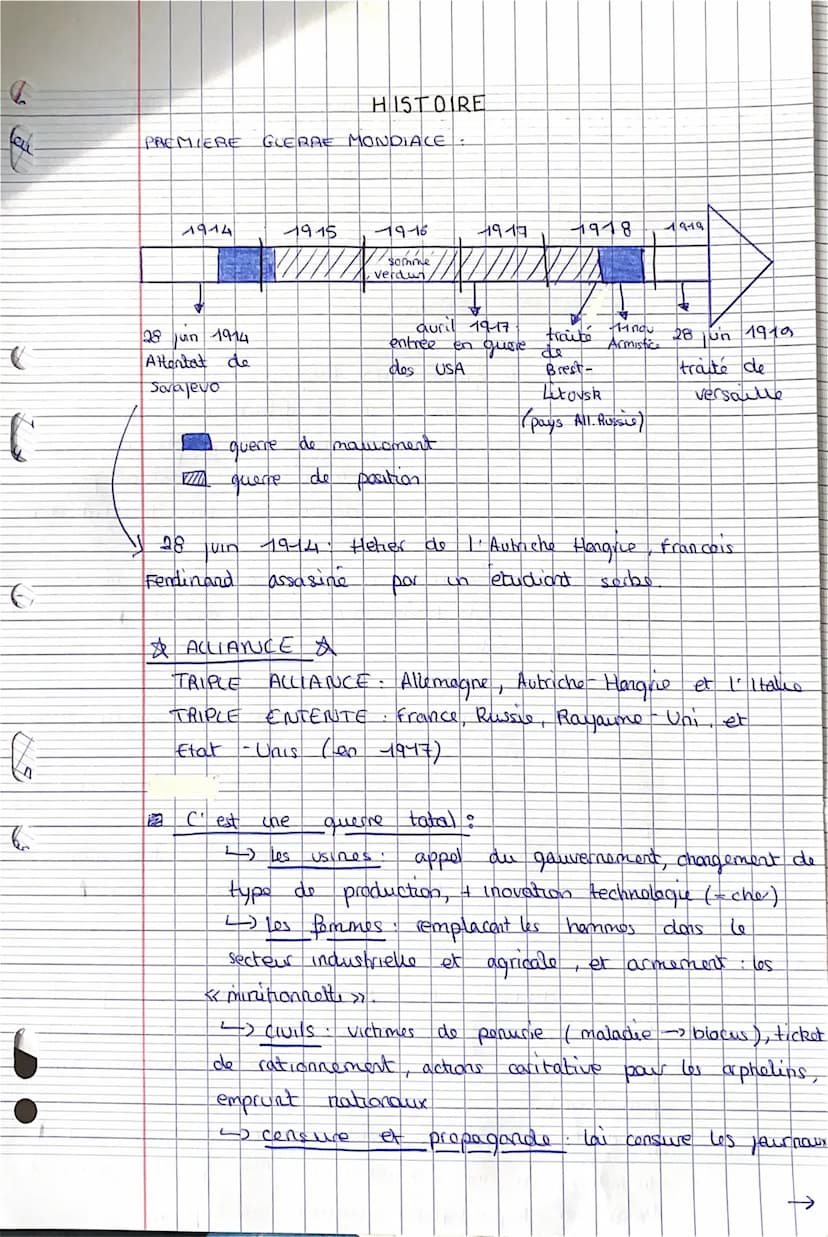 HISTOIRE
PREMIERE GUERRE MONDIALE :
1914 1915 1916 1917 1918 1919
somme
verdun
28 juin 1914
Attentat de
Sarajevo
avril 1917
entrée en guerre
des USA
traité
de
Brest-
Litovsk
(pays All. Russie)
11 nov
Armistice
28 juin 1919
traité de
versaille
guerre de mouvement
guerre de position
28 juin 1914 : Hetier de l'Autriche Hongrie, François
Ferdinand assasiné par un étudiant serbe.
☆ ALLIANCE ☆
TRIPLE ALLIANCE : Allemagne, Autriche-Hongrie et l'Italie
TRIPLE ENTENTE : France, Russie, Royaume-Uni, et
Etat-Unis (en 1917)
C'est une guerre total :
↳ les usines : appel du gouvernement, changement de
type de production, + inovation technologie (= cher)
↳ les femmes : remplacent les hommes dans le
secteur industrielle et agricole, et armement : les
« munitionnette ».
↳ civils : victimes de penurie (maladie → blocus), ticket
de rationnement, actions caritative pour les orphelins,
emprunt nationaux
↳ censure et propagande : loi censure les journaux
→